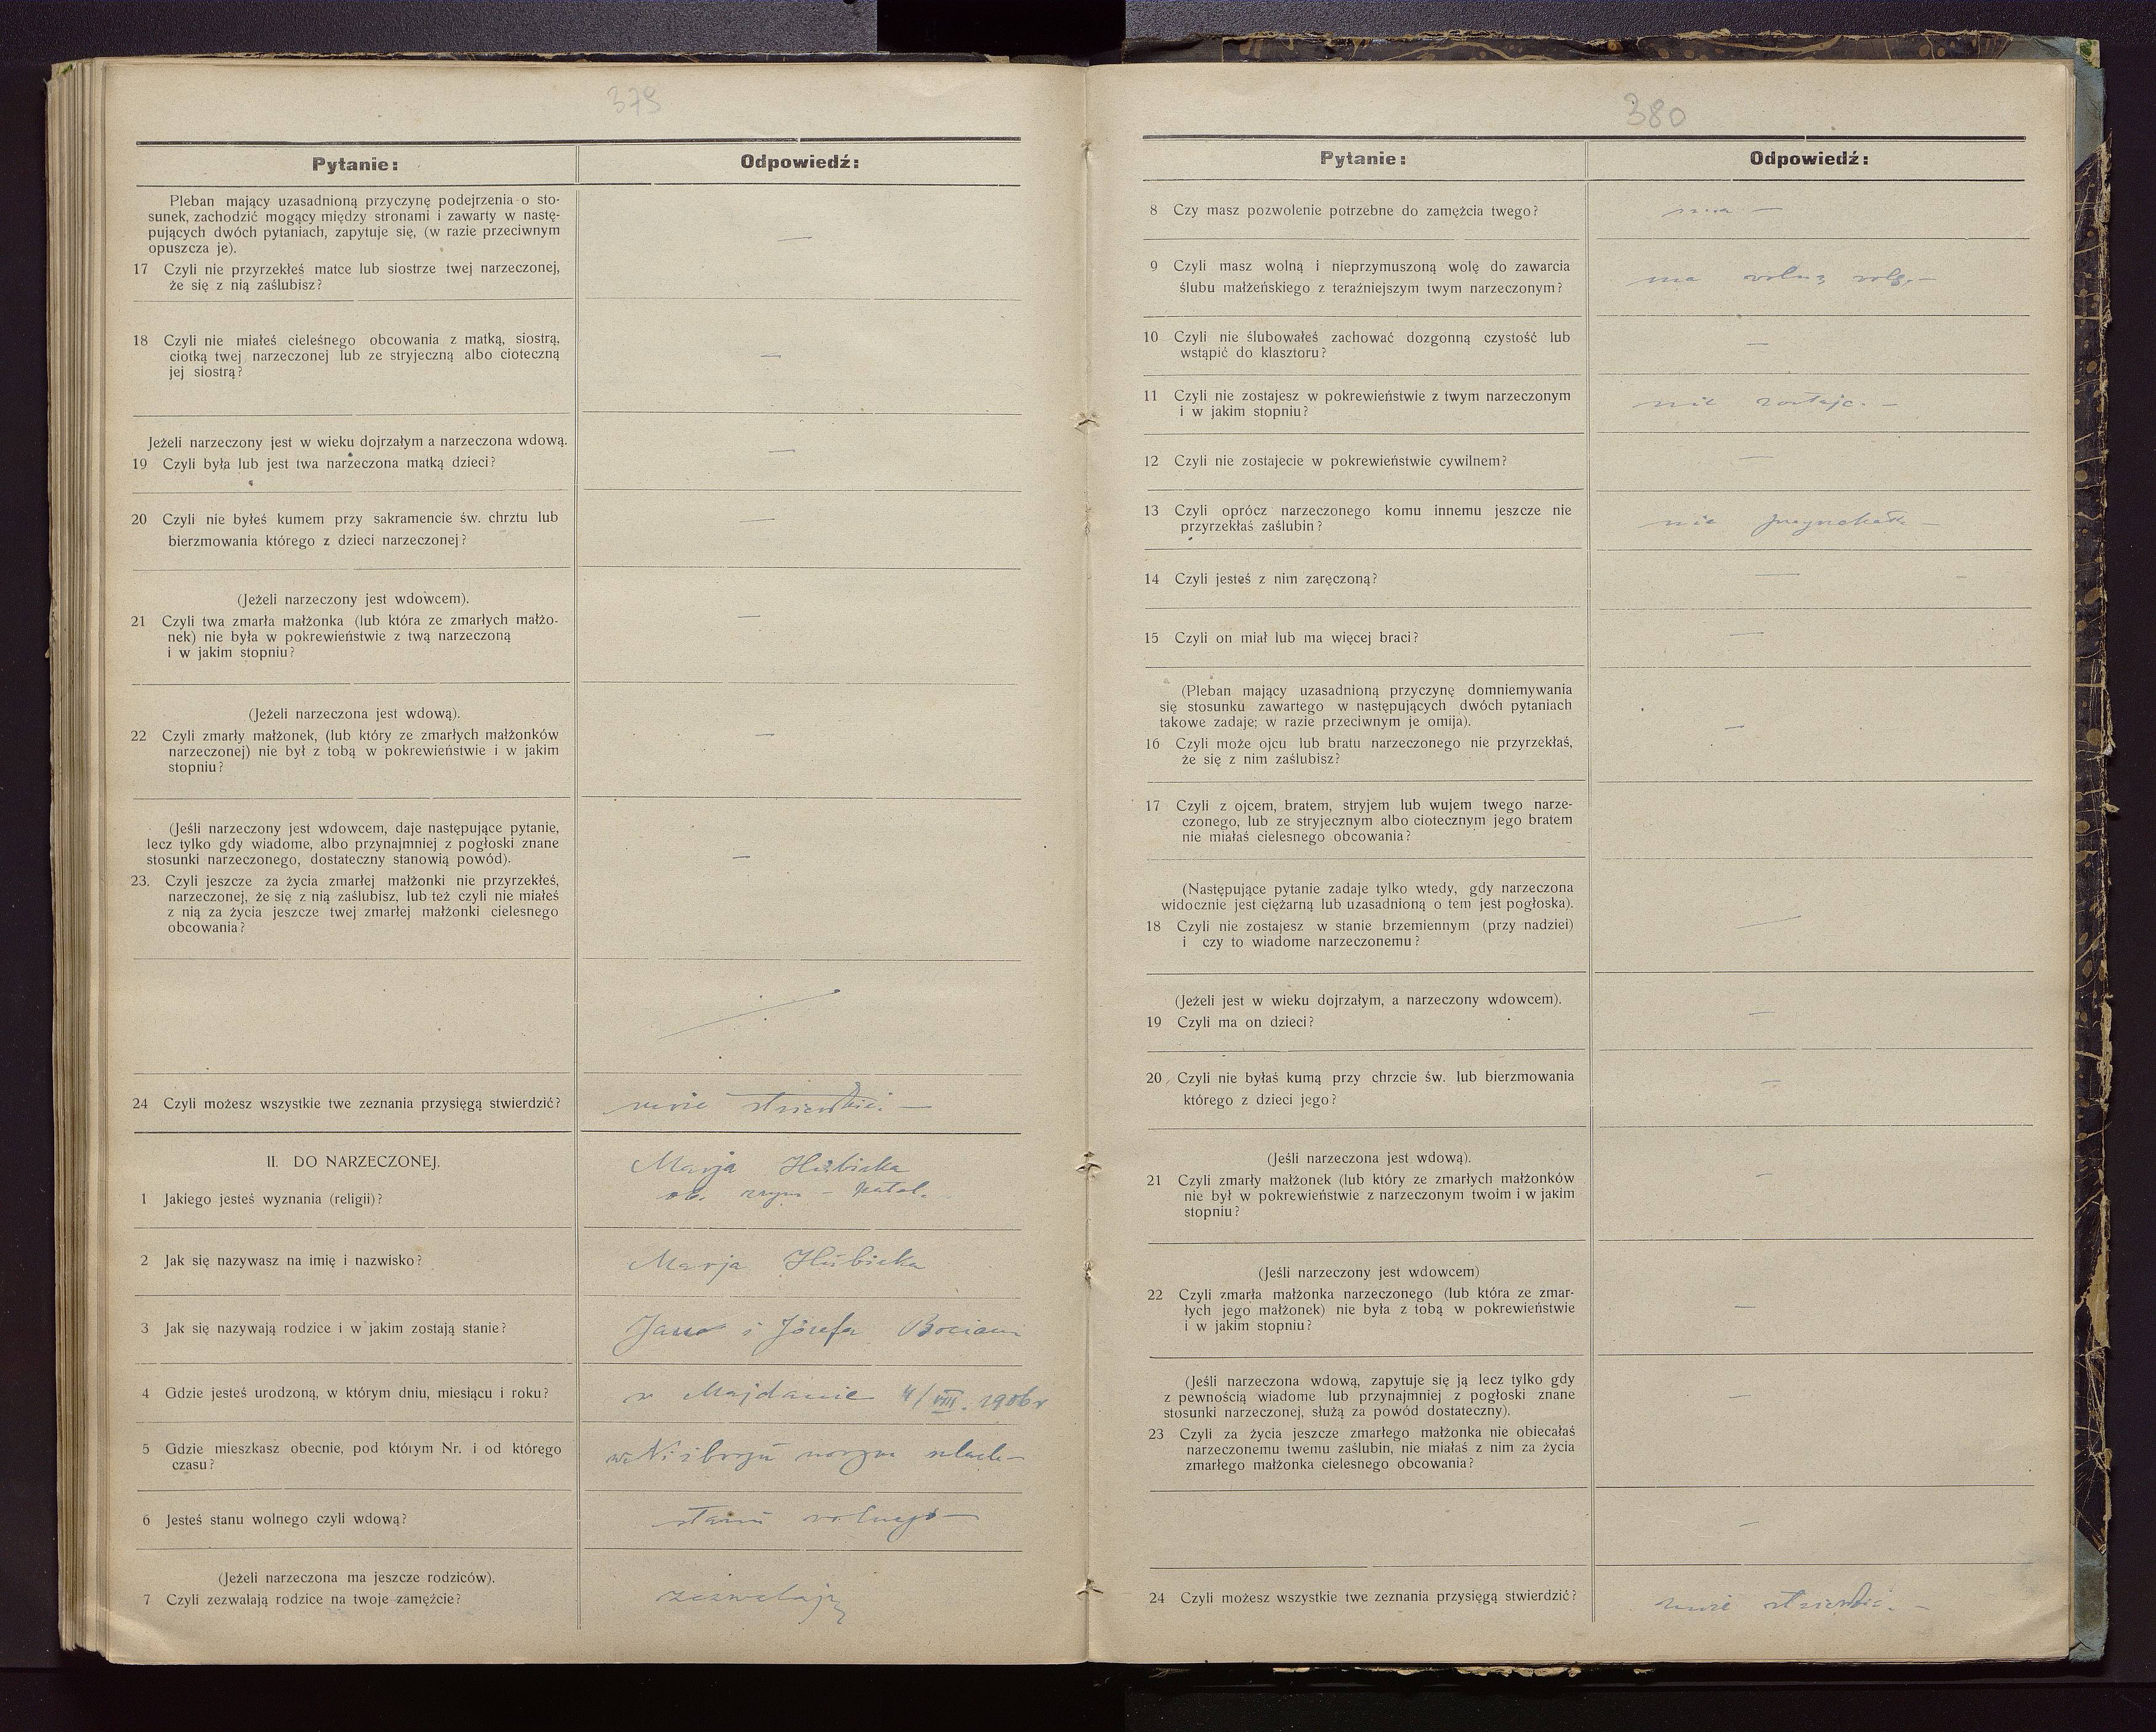 379
Pytanie:
Odpowiedź:
Pleban mający uzasadnioną przyczynę podejrzenia o sto-
sunek, zachodzić mogący między stronami i zawarty w nastę-
pujących dwóch pytaniach, zapytuje się, (w razie przeciwnym
opuszcza je).
17 Czyli nie przyrzekłeś matce lub siostrze twej narzeczonej,
że się z nią zaślubisz?
—
18 Czyli nie miałeś cieleśnego obcowania z matką, siostrą,
ciotką twej narzeczonej lub ze stryjeczną albo cioteczną
jej siostrą?
—
Jeżeli narzeczony jest w wieku dojrzałym a narzeczona wdową.
19 Czyli była lub jest twa narzeczona matką dzieci?
—
20 Czyli nie byłeś kumem przy sakramencie św. chrztu lub
bierzmowania którego z dzieci narzeczonej?
—
(Jeżeli narzeczony jest wdowcem).
21 Czyli twa zmarła małżonka (lub która ze zmarłych małżo-
nek) nie była w pokrewieństwie z twą narzeczoną
i w jakim stopniu?
—
(Jeżeli narzeczona jest wdową).
22 Czyli zmarły małżonek, (lub który ze zmarłych małżonków
narzeczonej) nie był z tobą w pokrewieństwie i w jakim
stopniu?
—
(Jeśli narzeczony jest wdowcem, daje następujące pytanie,
lecz tylko gdy wiadome, albo przynajmniej z pogłoski znane
stosunki narzeczonego, dostateczny stanowią powód).
23. Czyli jeszcze za życia zmarłej małżonki nie przyrzekłeś,
narzeczonej, że się z nią zaślubisz, lub też czyli nie miałeś
z nią za życia jeszcze twej zmarłej małżonki cielesnego
obcowania?
—
24 Czyli możesz wszystkie twe zeznania przysięgą stwierdzić?
może —
II. DO NARZECZONEJ.
Marja Hubicka
1 Jakiego jesteś wyznania (religii)?
ob. rzym – katol.
2 Jak się nazywasz na imię i nazwisko?
Marja Hubicka
3 Jak się nazywają rodzice i w jakim zostają stanie?
i Józefa Bocian
4 Gdzie jesteś urodzoną, w którym dniu, miesiącu i roku?
w Majdanie 4/VIII. 1906 r
5 Gdzie mieszkasz obecnie, pod którym Nr. i od którego
czasu?
w Niżborgu
6 Jesteś stanu wolnego czyli wdową?
stanu wolnego —
(Jeżeli narzeczona ma jeszcze rodziców).
7 Czyli zezwalają rodzice na twoje zamęźcie?
zezwalają
380
Pytanie:
Odpowiedź:
8 Czy masz pozwolenie potrzebne do zamężcia twego?
ma —
9 Czyli masz wolną i nieprzymuszoną wolę do zawarcia
ślubu małżeńskiego z teraźniejszym twym narzeczonym?
ma wolną wolę. —
10 Czyli nie ślubowałeś zachować dozgonną czystość lub
wstąpić do klasztoru?
—
11 Czyli nie zostajesz w pokrewieństwie z twym narzeczonym
i w jakim stopniu?
nie zostaje. —
12 Czyli nie zostajecie w pokrewieństwie cywilnem?
—
13 Czyli oprócz narzeczonego komu innemu jeszcze nie
przyrzekłaś zaślubin?
nie —
14 Czyli jesteś z nim zaręczoną?
—
15 Czyli on miał lub ma więcej braci?
—
(Pleban mający uzasadnioną przyczynę domniemywania
się stosunku zawartego w następujących dwóch pytaniach
takowe zadaje; w razie przeciwnym je omija).
16 Czyli może ojcu lub bratu narzeczonego nie przyrzekłaś,
że się z nim zaślubisz?
—
17 Czyli z ojcem, bratem, stryjem lub wujem twego narze-
czonego, lub ze stryjecznym albo ciotecznym jego bratem
nie miałaś cielesnego obcowania?
(Następujące pytanie zadaje tylko wtedy, gdy narzeczona
widocznie jest ciężarną lub uzasadnioną o tem jest pogłoska).
18 Czyli nie zostajesz w stanie brzemiennym (przy nadziei)
i czy to wiadome narzeczonemu?
—
(Jeżeli jest w wieku dojrzałym, a narzeczony wdowcem).
19 Czyli ma on dzieci?
—
20 Czyli nie byłaś kumą przy chrzcie św. lub bierzmowania
którego z dzieci jego?
—
(Jeśli narzeczona jest wdową).
21 Czyli zmarły małżonek (lub który ze zmarłych małżonków
nie był w pokrewieństwie z narzeczonym twoim i w jakim
stopniu?
—
(Jeśli narzeczony jest wdowcem)
22 Czyli zmarła małżonka narzeczonego (lub która ze zmar-
łych jego małżonek) nie była z tobą w pokrewieństwie
i w jakim stopniu?
—
(Jeśli narzeczona wdową, zapytuje się ją lecz tylko gdy
z pewnością wiadome lub przynajmniej z pogłoski znane
stosunki narzeczonej, służą za powód dostateczny).
23 Czyli za życia jeszcze zmarłego małżonka nie obiecałaś
narzeczonemu twemu zaślubin, nie miałaś z nim za życia
zmarłego małżonka cielesnego obcowania?
—
—
24 Czyli możesz wszystkie twe zeznania przysięgą stwierdzić?
może —